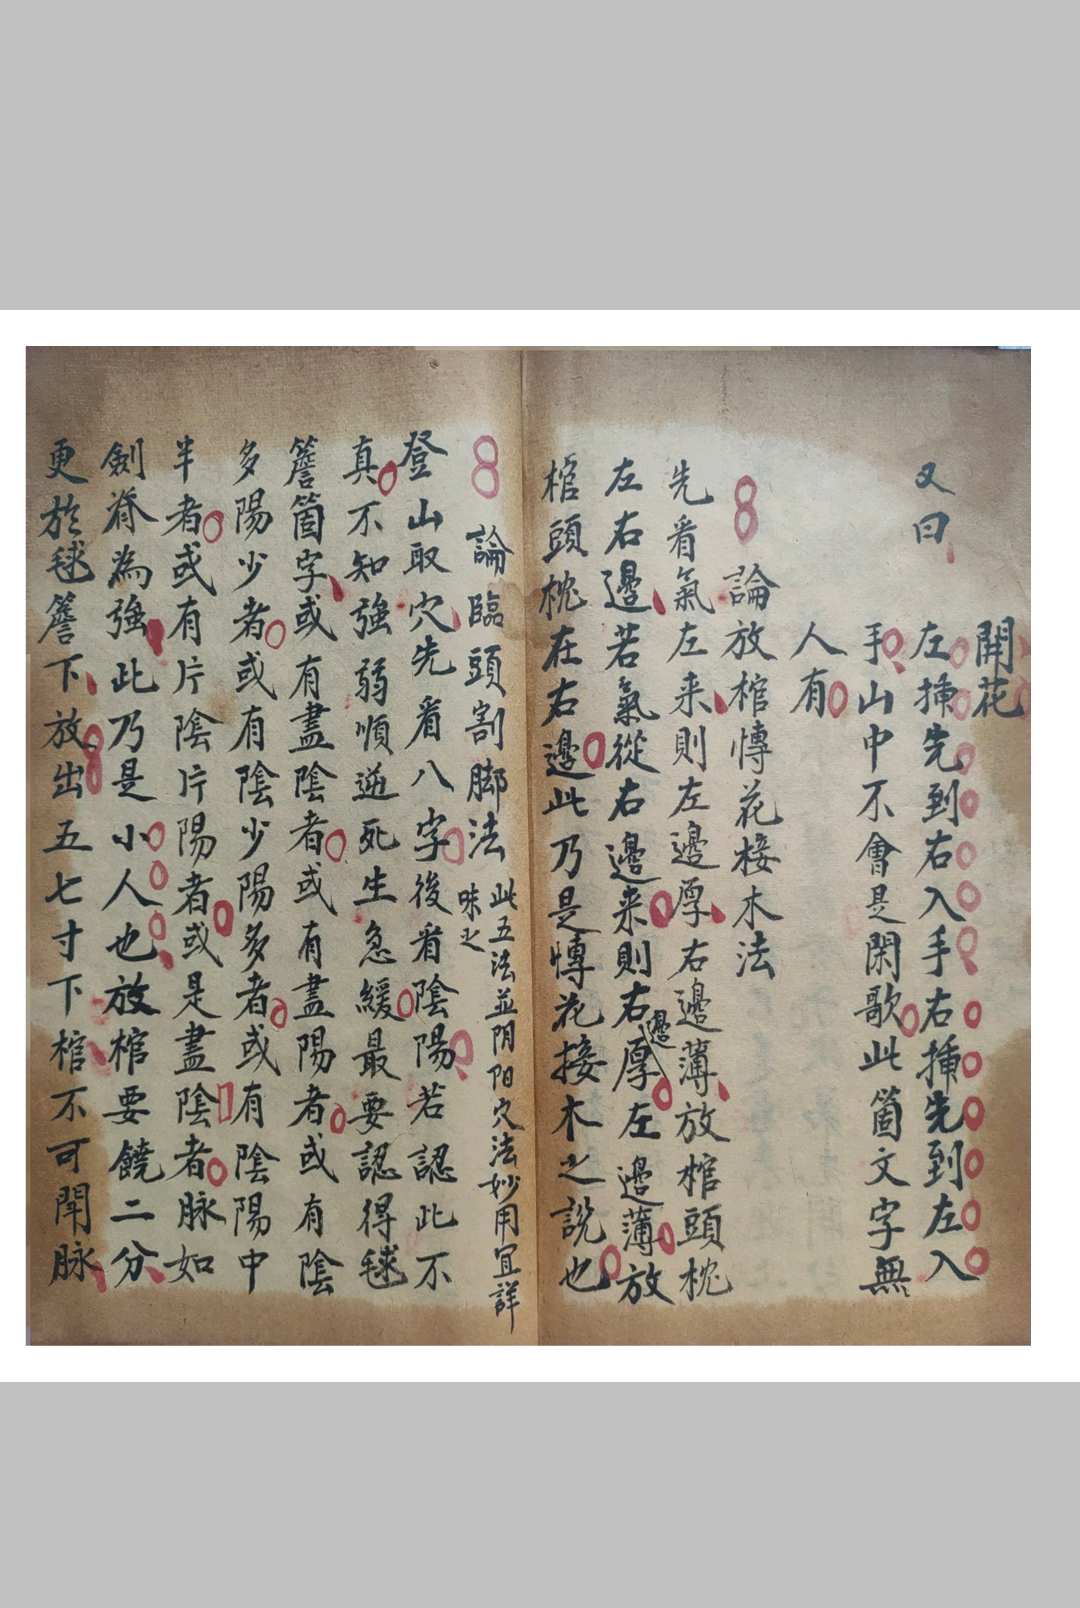 開花
又曰
左揷先到右入手右揷先到左入
手山中不會是閑歌此箇文字無
人有
論放棺慱花接木法
先看氣左来則左邊厚右邊薄放棺頭枕
左右邊若氣從右邊来則右邊厚左邊薄放
棺頭枕在右邊此乃是慱花接木之說也
論臨頭割脚法
此五法並阴阳穴法妙用宜詳
味之
登山取穴先看八字後看陰陽若認此不
真不知強弱順逆死生急緩最要認得毬
簷箇字或有盡陰者或有盡陽者或有陰
多陽少者或有陰少陽多者或有陰陽中
半者或有片陰片陽者或是盡陰者脉如
劍脊為強此乃是小人也放棺要饒二分
更於毬簷下放出五七寸下棺不可闘脉